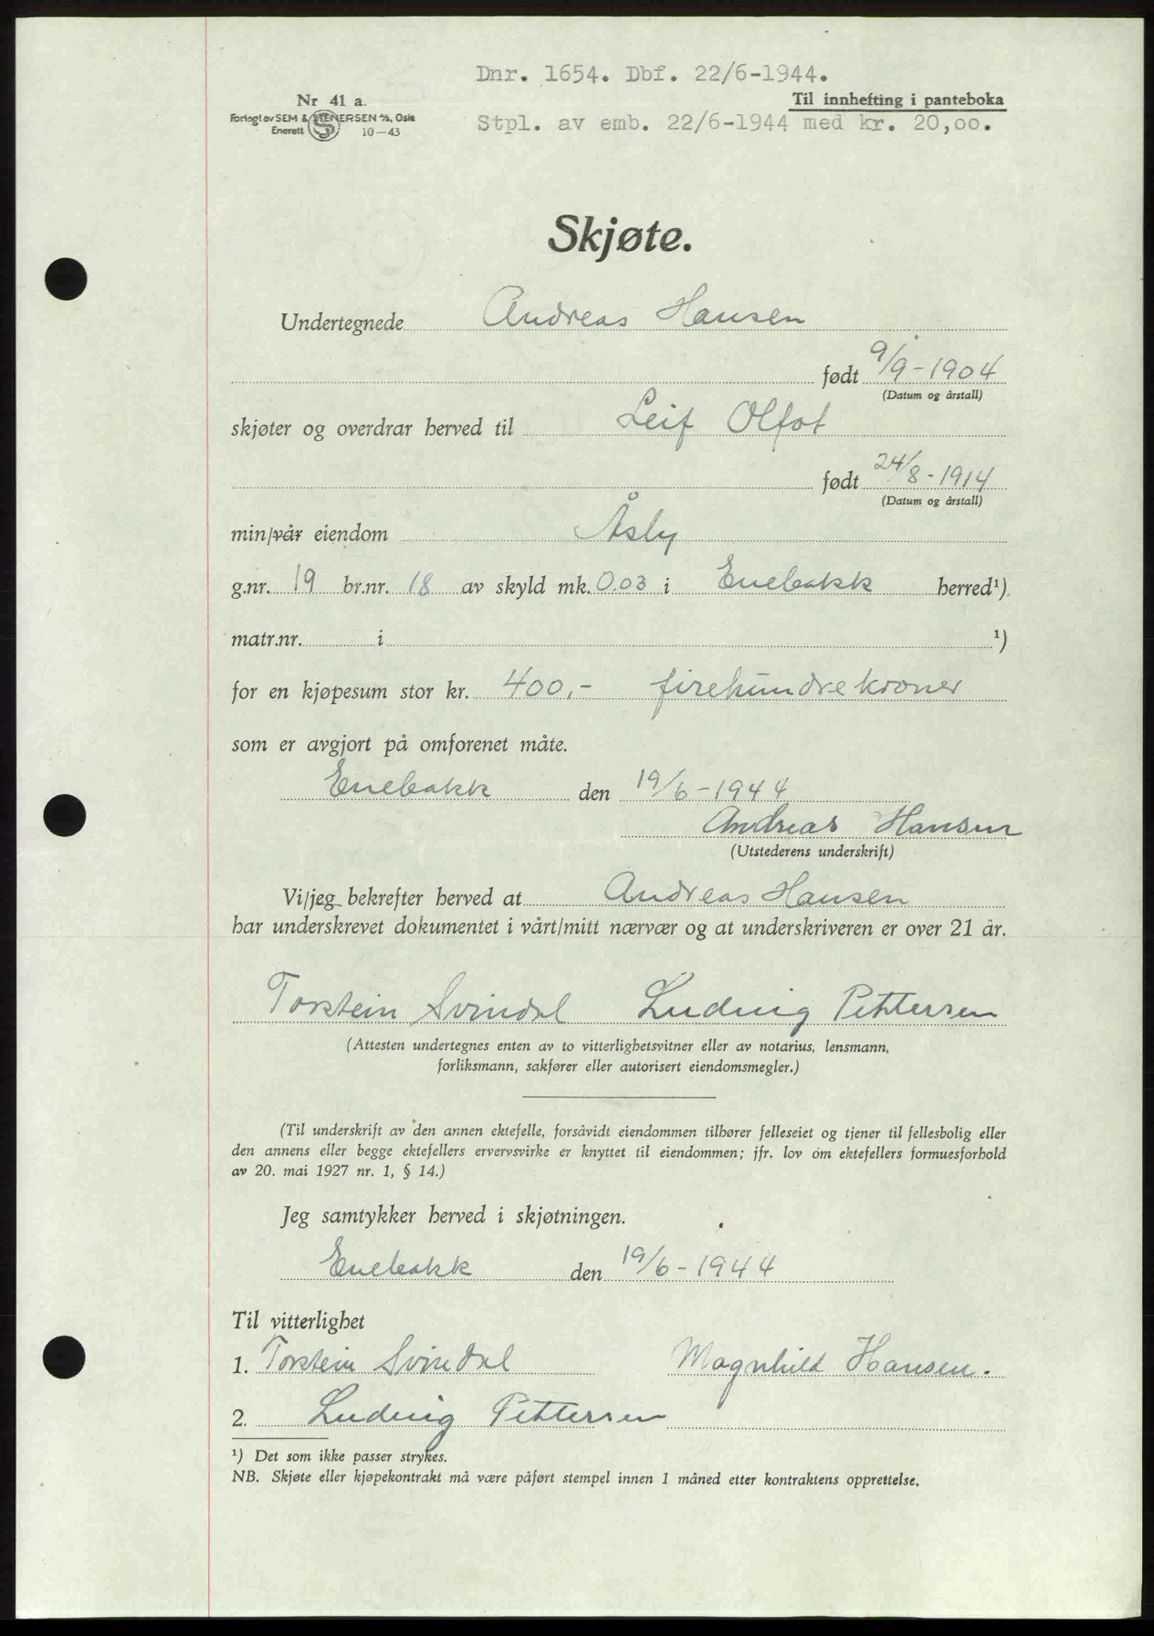 Dnr. 1654. Dbf. 22/6-1944.
Nr 41 a.
Til innhefting i panteboka
Forlagt av SEM & STENERSEN A/S, Oslo
Enerett 10—43
Stpl. av emb. 22/6-1944 med kr. 20,oo.
Skjøte.
Undertegnede Andreas Hansen
født 9/9-1904
(Datum og årstall)
skjøter og overdrar herved til Leif Olfot
født 24/8-1914
(Datum og årstall)
min/vår eiendom Åsly
g.nr. 19 br.nr. 18 av skyld mk. 0.03 i Enebakk herred¹)
matr.nr. i ¹)
for en kjøpesum stor kr. 400,- firehundrekroner
som er avgjort på omforenet måte.
Enebakk den 19/6-1944
Andreas Hansen
(Utstederens underskrift)
Vi/jeg bekrefter herved at Andreas Hansen
har underskrevet dokumentet i vårt/mitt nærvær og at underskriveren er over 21 år.
Torstein Svindal Ludvig Pettersen
(Attesten undertegnes enten av to vitterlighetsvitner eller av notarius, lensmann,
forliksmann, sakfører eller autorisert eiendomsmegler.)
(Til underskrift av den annen ektefelle, forsåvidt eiendommen tilhører felleseiet og tjener til fellesbolig eller
den annens eller begge ektefellers ervervsvirke er knyttet til eiendommen; jfr. lov om ektefellers formuesforhold
av 20. mai 1927 nr. 1, § 14.)
Jeg samtykker herved i skjøtningen.
Enebakk den 19/6-1944
Til vitterlighet
1. Torstein Svindal Magnhild Hansen.
2. Ludvig Pettersen
¹) Det som ikke passer strykes.
NB. Skjøte eller kjøpekontrakt må være påført stempel innen 1 måned etter kontraktens opprettelse.